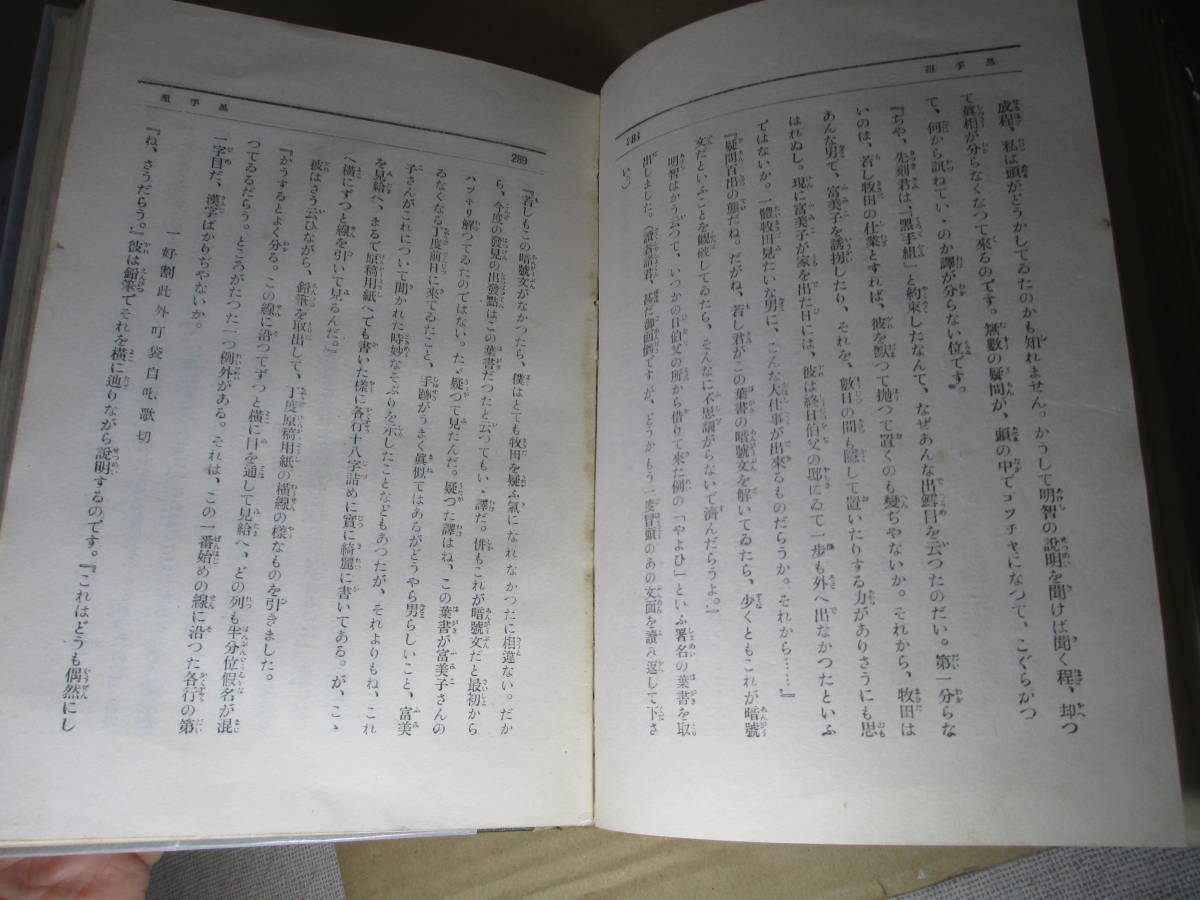 黒手組
成程、私は頭がどうかしてゐたのかも知れません。かうして明智の説明を聞けば聞く程、却つ
て眞相が分らなくなつて來るのです。無數の疑問が、頭の中でゴツチヤになつて、こぐらがつ
て、何から訊ねてい丶のか譯が分らない位です。
『ぢや、先刻君は、「黒手組」と約束したなんて、なぜあんな出鱈目を云つたのだい。第一分らな
いのは、若し牧田の仕業とすれば、彼を默つて抛つて置くのも變ぢやないか。それから、牧田は
あんな男で、富美子を誘拐したり、それを、數日の間も隠して置いたりする力がありさうにも思
はれぬし。現に富美子が家を出た日には、彼は終日伯父の邸にゐて一歩も外へ出なかつたといふ
ではないか。一體牧田見たいな男に、こんな大仕事が出來るものだらうか。それから……』
『疑問百出の態だね。だがね、若し君がこの葉書の暗號文を解いてゐたら、少くともこれが暗號
文だといふことを觀破してゐたら、そんなに不思議がらないで濟んだらうよ。』
明智はかう云つて、いつかの日伯父の所から借りて來た例の「やよひ」といふ署名の葉書を取
出しました。(讀者諸君、甚だ御面倒ですが、どうかもう一度冒頭のあの文面を讀み返して下さ
い。)
黒手組
289
『若しもこの暗號文がなかつたら、僕はとても牧田を疑ふ氣になれなかつたに相違ない。だか
ら、今度の發見の出發點はこの葉書だつたと云つてもい丶譯だ。併もこれが暗號文だと最初から
ハツキリ解つてゐたのではない。たゞ疑つて見たんだ。疑つた譯はね、この葉書が富美子さんの
ゐなくなる丁度前日に來てゐたこと、手跡がうまく眞似てはあるがどうやら男らしいこと、富美
子さんがこれについて聞かれた時妙なそぶりを示したことなどもあつたが、それよりもね、これ
を見給へ、まるで原稿用紙へでも書いた樣に各行十八字詰めに實に綺麗に書いてある。が、こゝ
へ橫にずつと線を引いて見るんだ。』
彼はさう云ひながら、鉛筆を取出して、丁度原稿用紙の橫線の樣なものを引きました。
『かうするとよく分る。この線に沿つてずつと橫に目を通して見給へ、どの列も半分位假名が混
つてるるだらう。ところがたつた一つ例外がある。それは、この一番始めの線に沿つた各行の第
一字目だ、漢字ばかりぢやないか。
一好割此外叮袋自叱歌切
『ね、さうだらう。』彼は鉛筆でそれを橫に辿りながら說明するのです。『これはどうも偶然にし